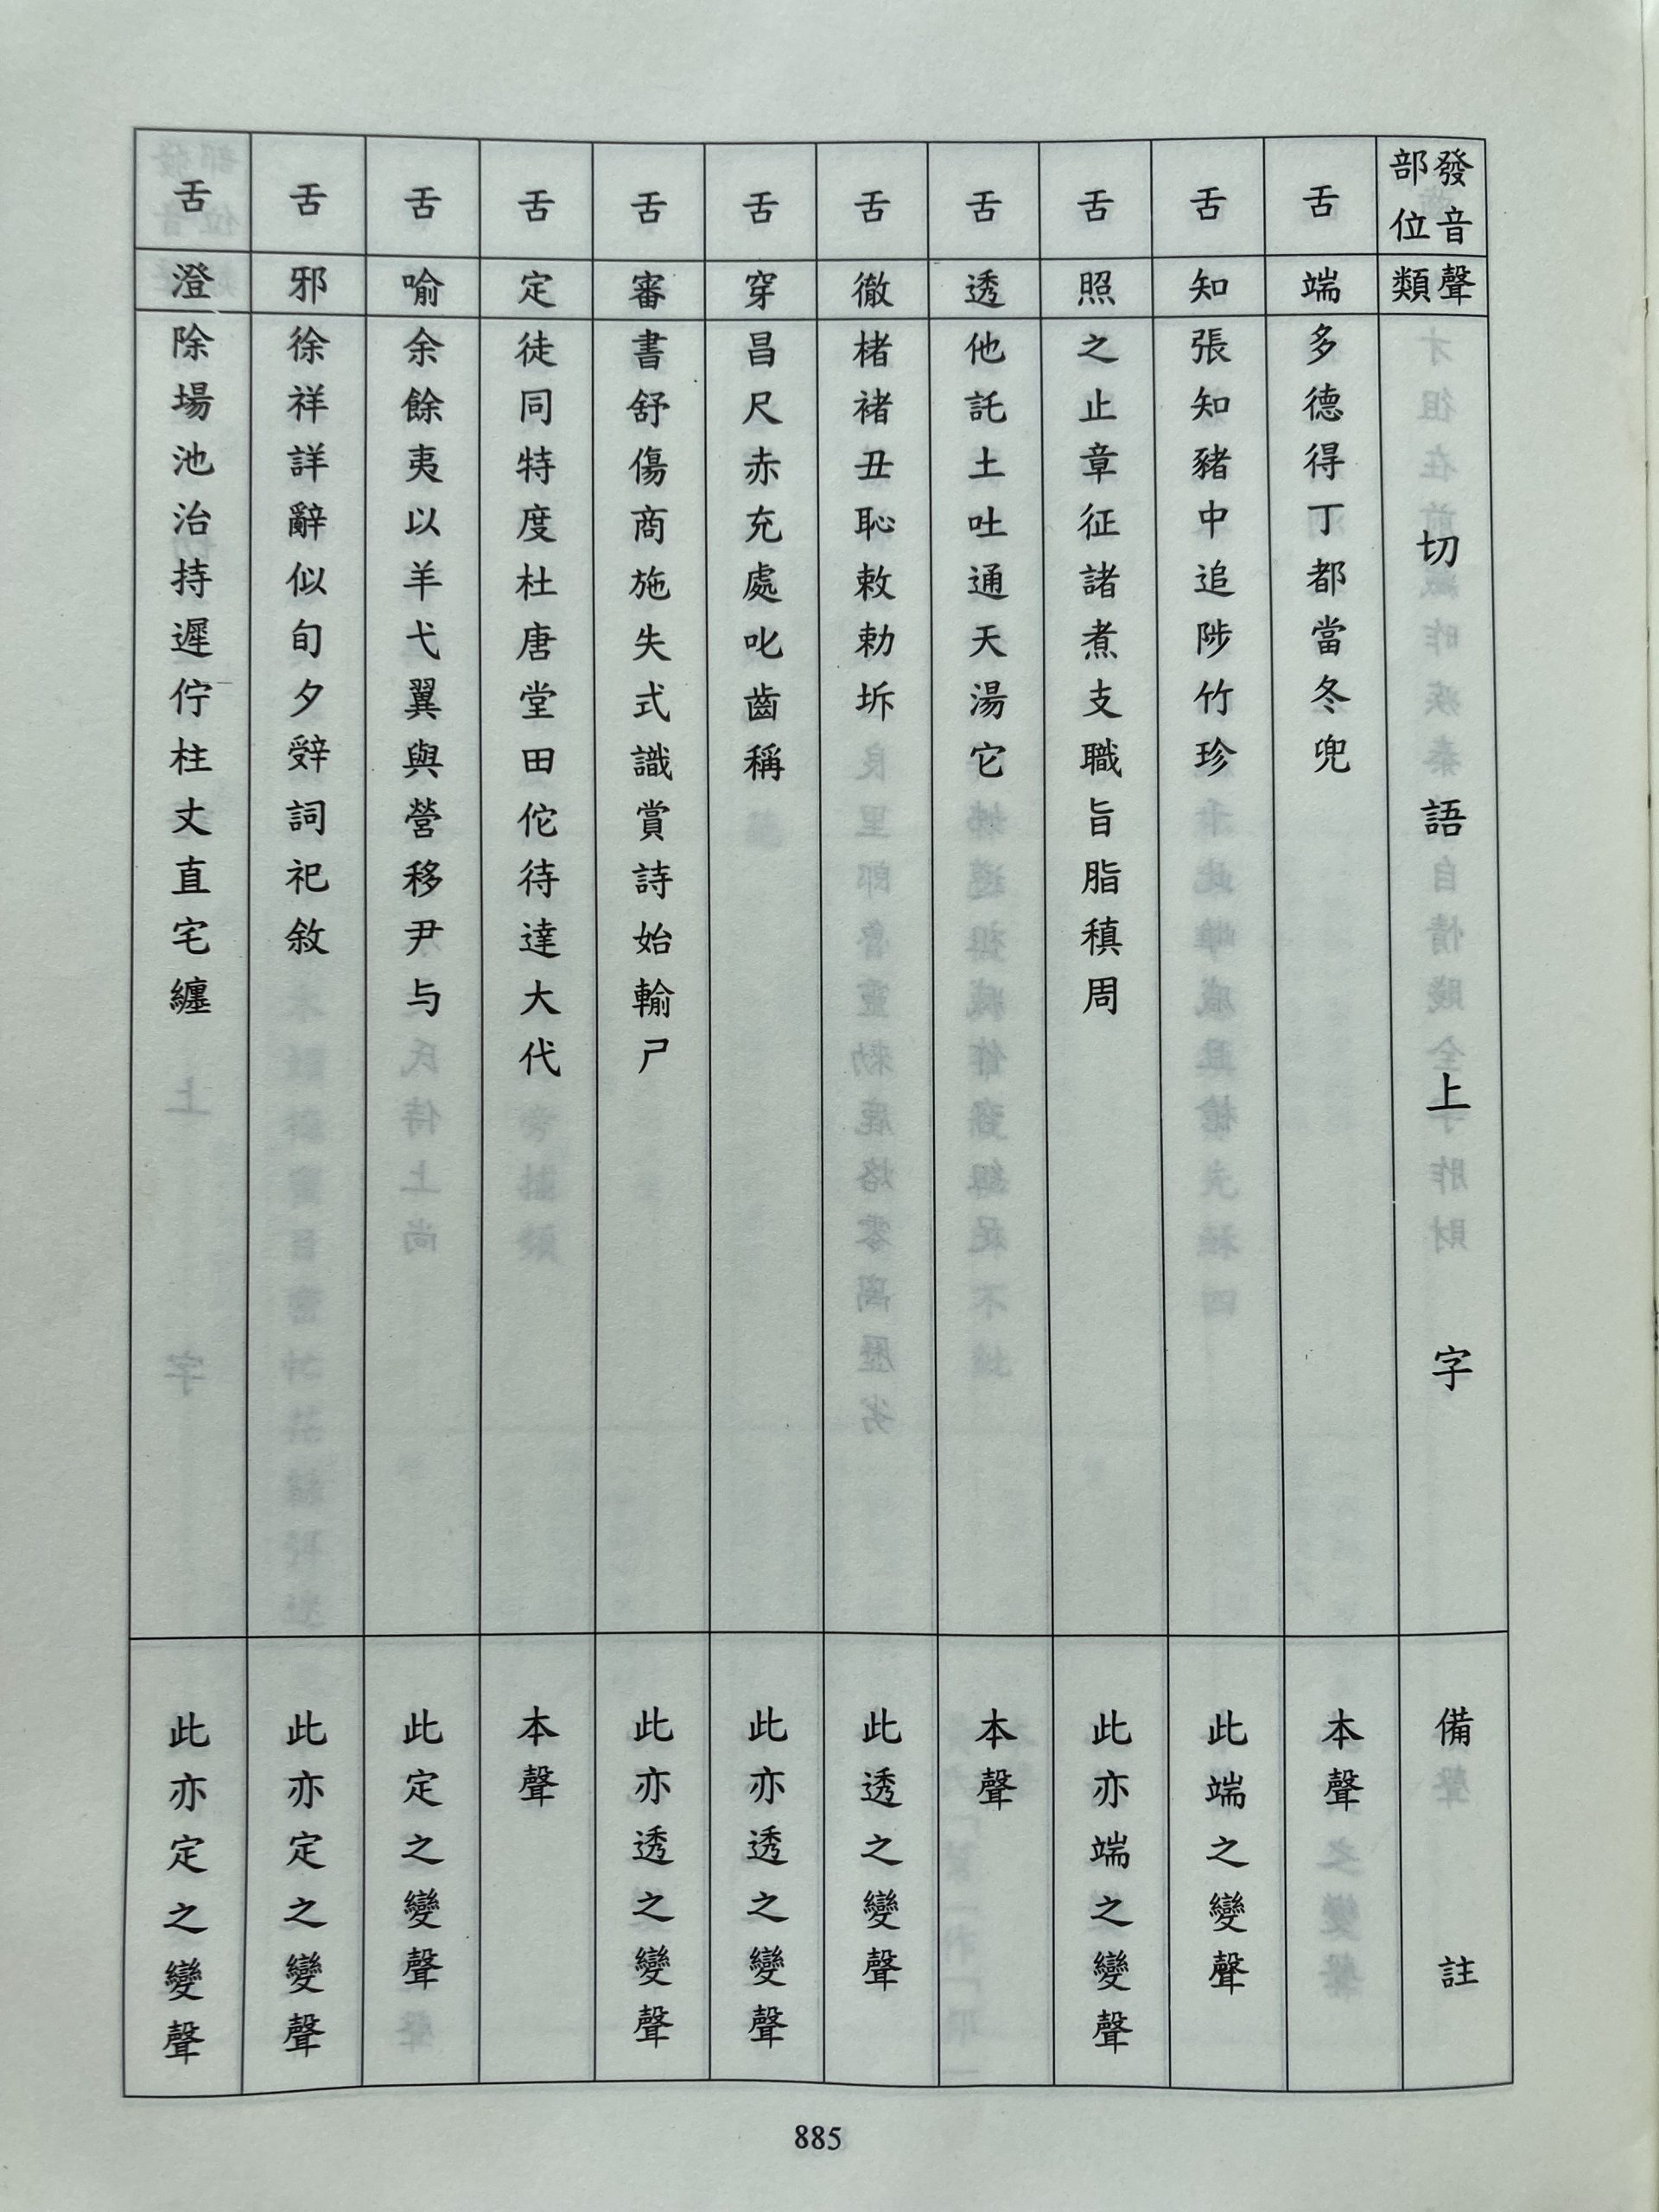 發音部位 聲類 切語上字 備註
舌 端 多德得丁都當冬兜 本聲
舌 知 張知豬中追陟竹珍 此端之變聲
舌 照 之止章征諸煮支職旨脂稹周 此亦端之變聲
舌 透 他託土吐通天湯它 本聲
舌 徹 楮褚丑恥敕勑坼 此透之變聲
舌 穿 昌尺赤充處叱齒稱 此亦透之變聲
舌 審 書舒傷商施失式識賞詩始輸尸 此亦透之變聲
舌 定 徒同特度杜唐堂田佗待達大代 本聲
舌 喻 余餘夷以羊弋翼與營移尹与 此定之變聲
舌 邪 徐祥詳辭似旬夕辝詞祀敘 此亦定之變聲
舌 澄 除場池治持遲佇柱丈直宅纏 此亦定之變聲
885